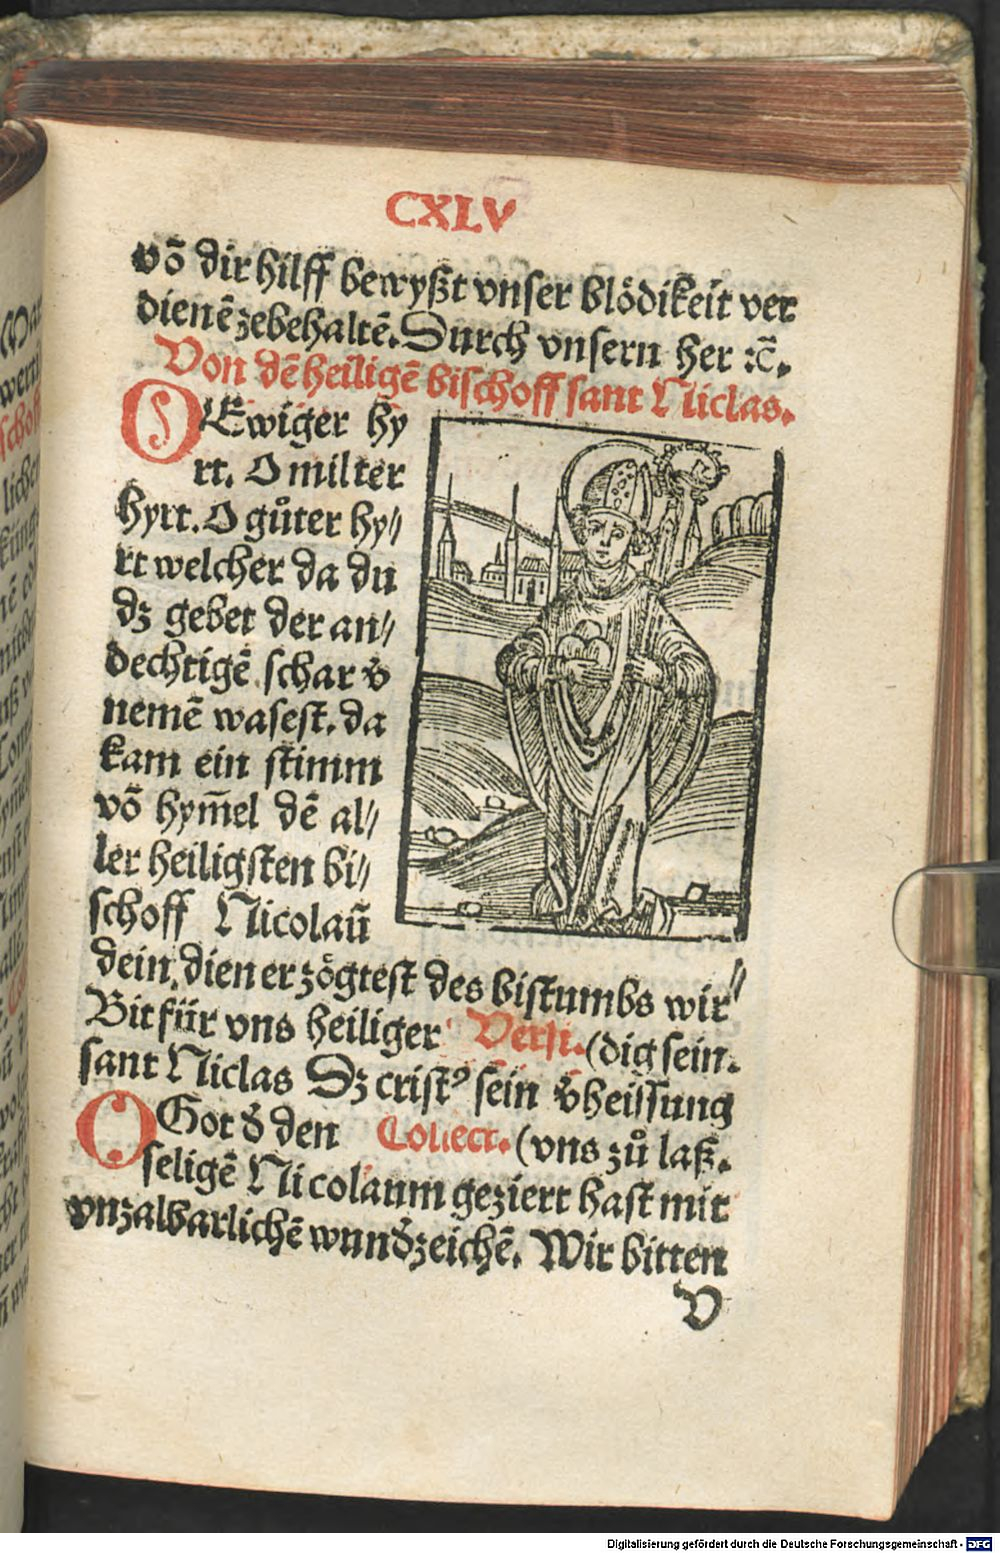 CXLV
vō dir hilff bewyßt vnser blödikeit ver
dienē zebehaltē. Durch vnsern her ⁊c̄.
Von dē heiligē bischoff sant Niclas.
O Ewiger hy
rt. O milter
hyrt. O gůter hy//
rt welcher da du
dz gebet der an//
dechtigē schar v̄
nemē wasest. da
kam ein stimm
vō hym̄el dē al//
ler heiligsten bi//
schoff Nicolaū
dein, dien erzögtest des bistumbs wir//
Bit für vns heiliger Versi. (dig sein.
sant Niclas Dz cristꝰ sein v̄heissung
O Got d̄ den Collect. (vns zů laß.
seligē Nicolaum geziert hast mit
vnzalbarlichē wund̄zeichē. Wir bitten
V
Digitalisierung gefördert durch die Deutsche Forschungsgemeinschaft - DFG